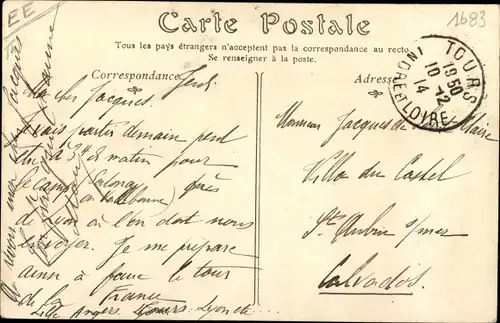 EE
1683
Carte Postale
Tous les pays étrangers n'acceptent pas la correspondance au recto
Se renseigner à la poste.
Correspondance
Adresse
TOURS
1950
10-12
14
INDRE ET LOIRE
Jeudi
Mon cher Jacques.
Je vais partir demain
matin pour
le camp (Sathonay
ou Valbonne) près
de Lyon où l'on doit nous
envoyer. Je me prépare
ainsi à faire le tour
de la France
Lille Angers. Tours. Lyon etc...
Au revoir mon Jacques
Monsieur Jacques de
Villa du Castel
St Aubin s/mer
Calvados.